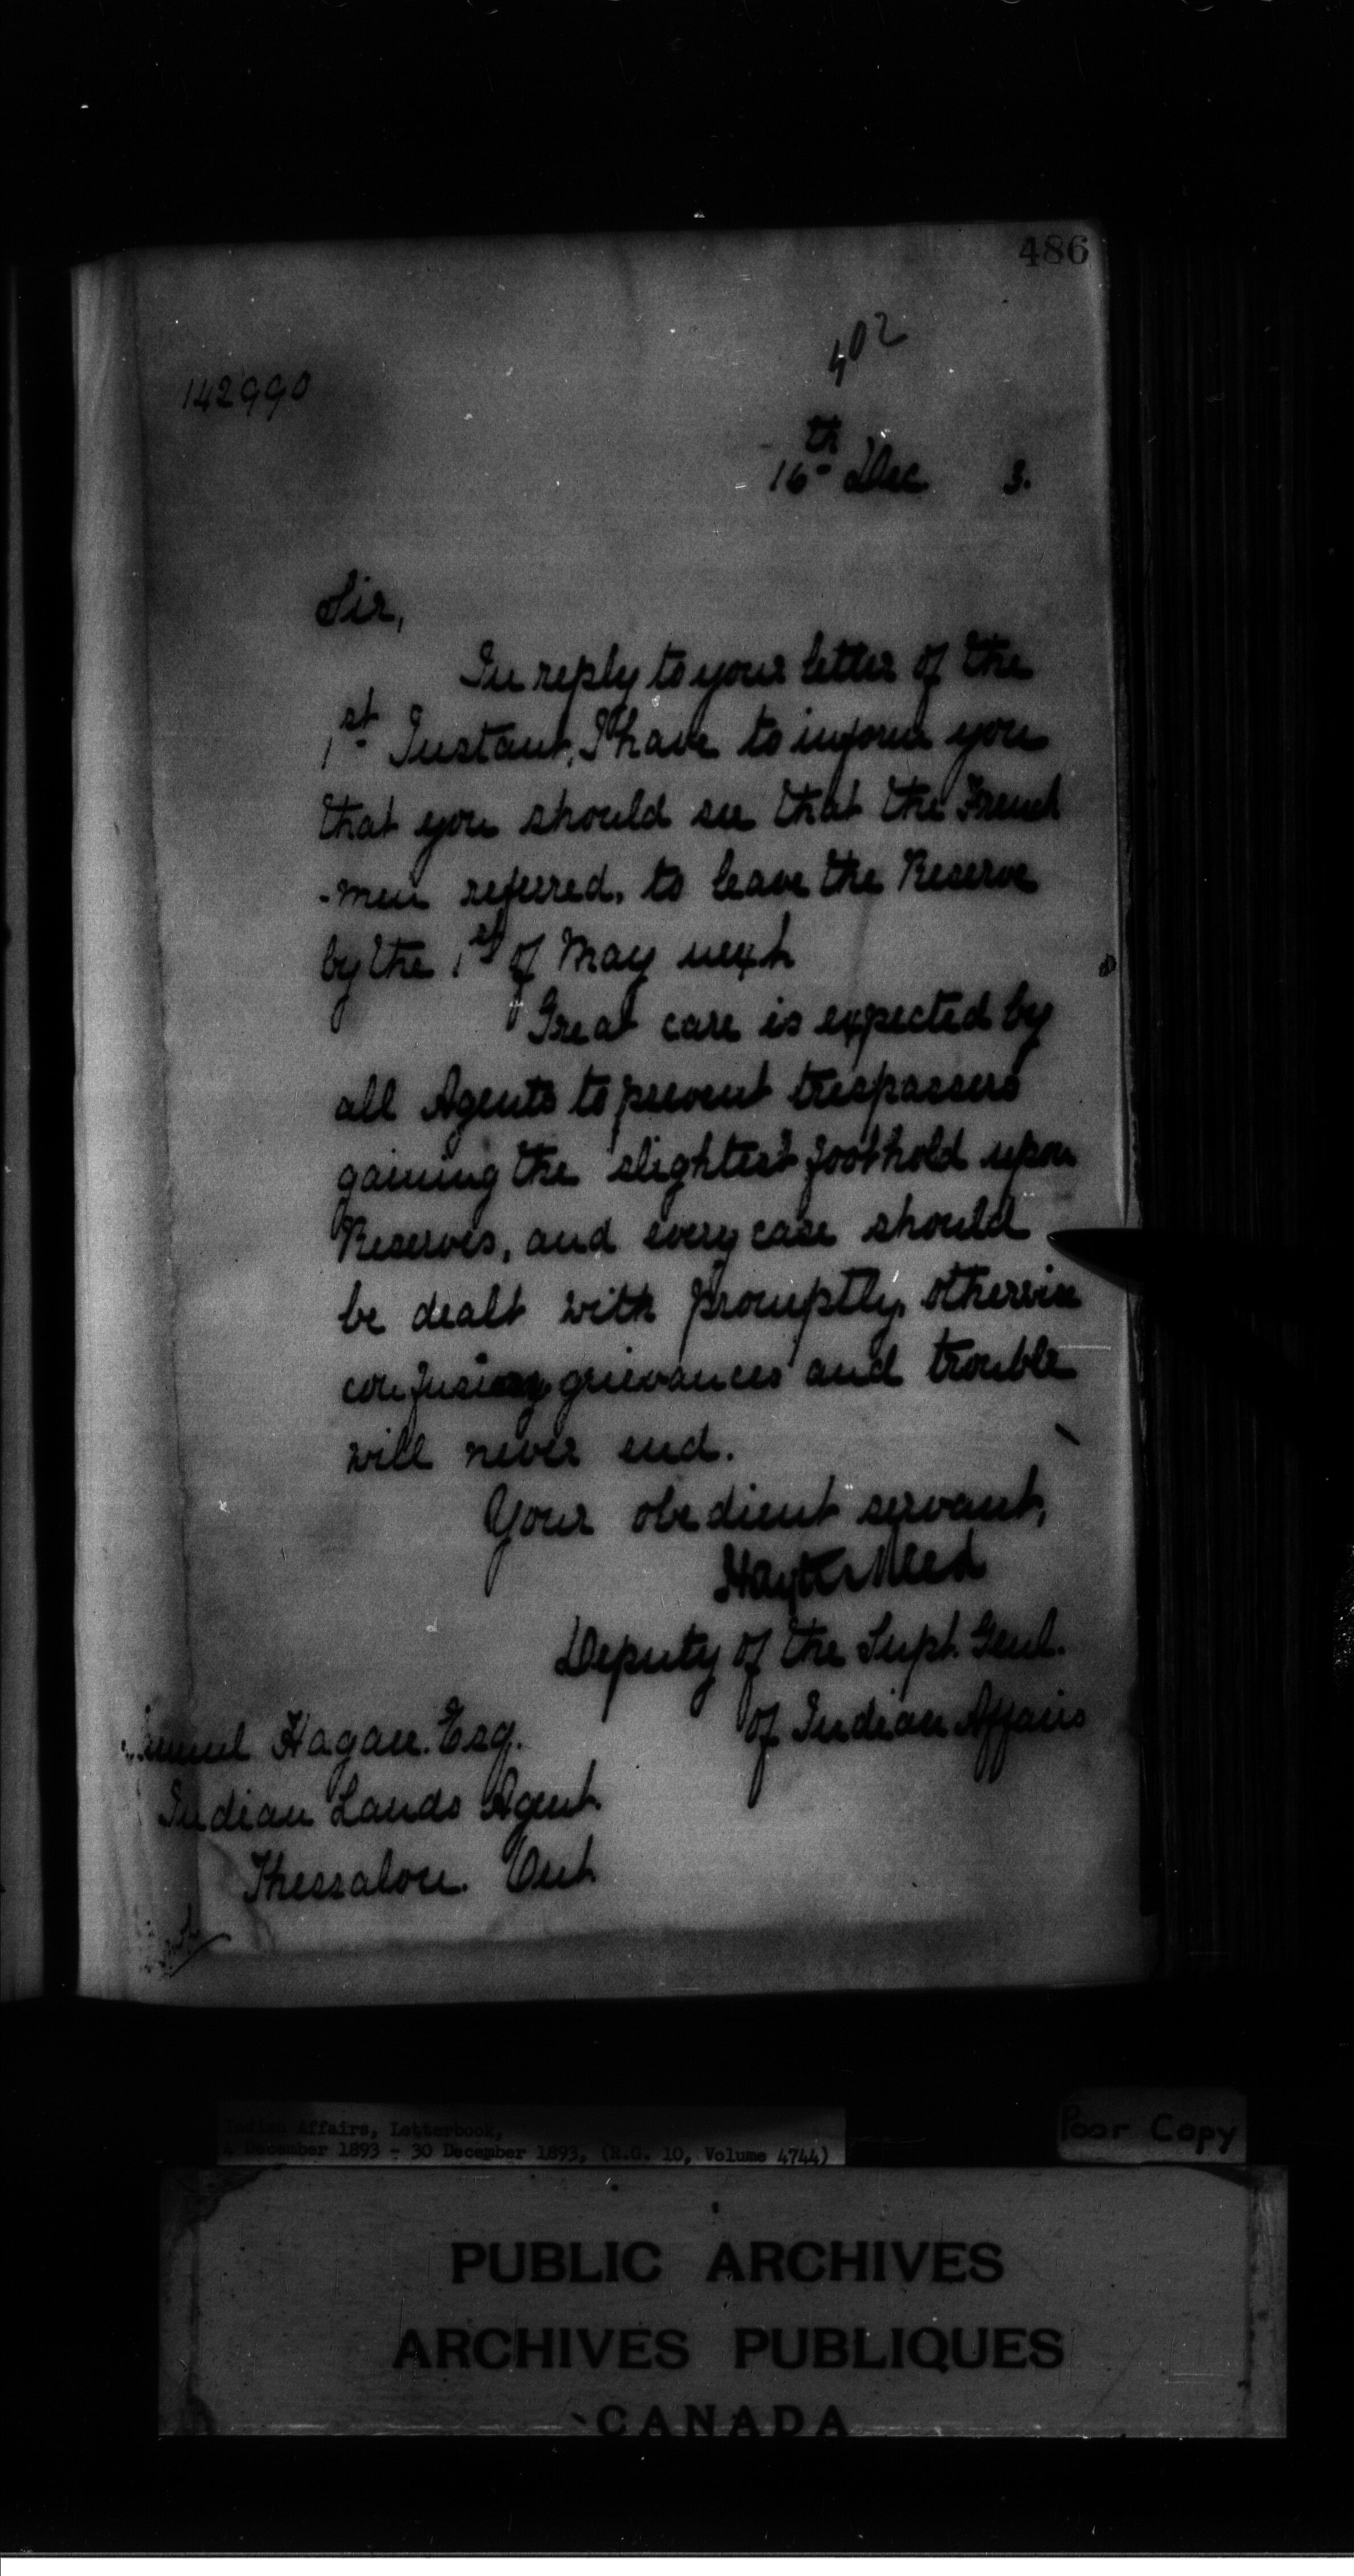 486
402
142990
16th Dec 3.
Sir,
In reply to your letter of the
1st Instant, I have to inform you
that you should see that the French
-men referred, to leave the Reserve
by the 1st of May next
Great care is expected by
all Agents to prevent trespassers
gaining the slightest foothold upon
Reserves, and every case should
be dealt with promptly, otherwise
confusion grievances and trouble
will never end.
Your obedient servant,
Hayter Reed
Deputy of the Supt. Genl.
of Indian Affairs
Samuel Hagan. Esq.
Indian Lands Agent.
Thessalon. Ont.
Indian Affairs, Letterbook,
4 December 1893 - 30 December 1893, (R.G. 10, Volume 4744)
Poor Copy
PUBLIC ARCHIVES
ARCHIVES PUBLIQUES
CANADA